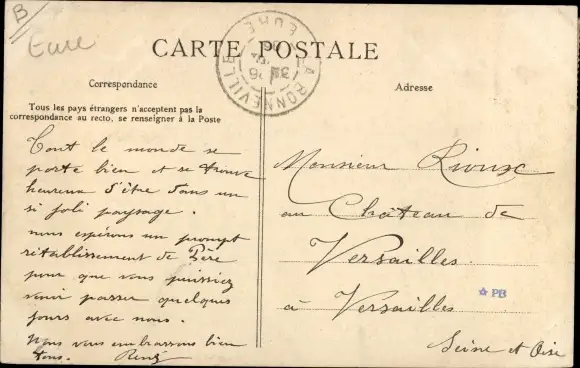 B
Eure
CARTE POSTALE
LA BONNEVILLE
EURE
Correspondance
Adresse
Tous les pays étrangers n'acceptent pas la
correspondance au recto, se renseigner à la Poste
Tout le monde se
porte bien et se trouve
heureux d'être dans un
si joli paysage.
nous espérons un prompt
rétablissement de Père
pour que vous puissiez
venir passer quelques
jours avec nous.
Nous vous embrassons bien
tous. René
Monsieur Rioux
au Château de
Versailles
à Versailles
PB
Seine et Oise